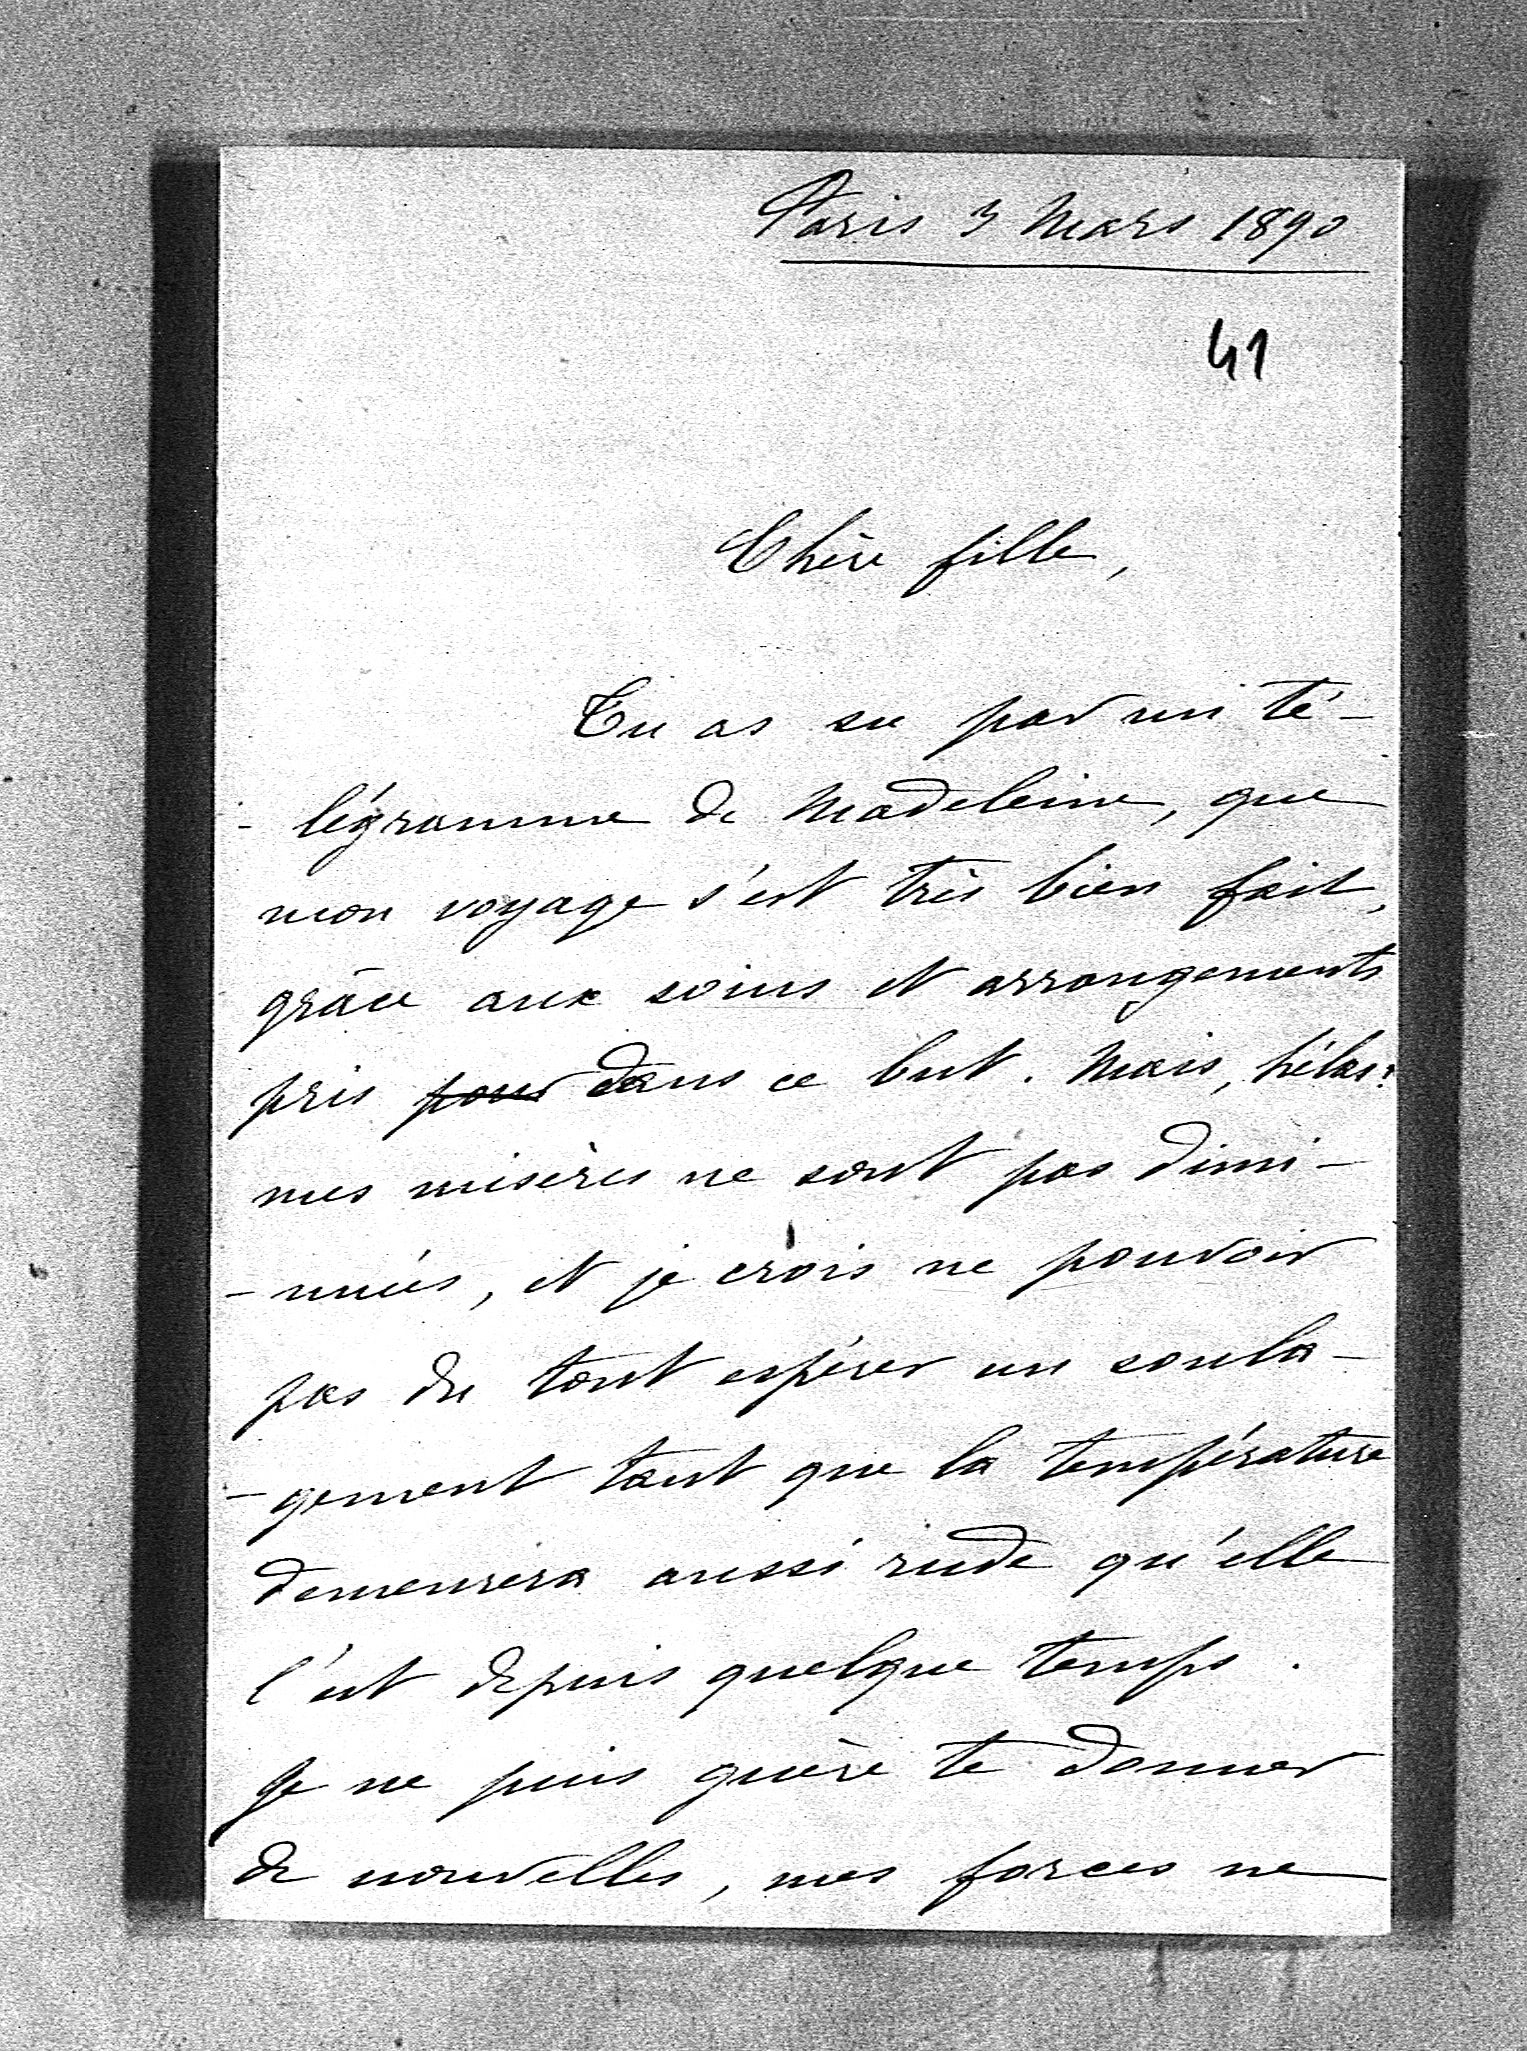 Paris 3 Mars 1890
41
Chère fille,
Tu as su par un té-
-légramme de Madeleine, que
mon voyage s'est très bien fait,
grâce aux soins et arrangements
pris pour dans ce but. Mais, hélas!
mes misères ne sont pas dimi-
-nuées, et je crois ne pouvoir
pas du tout espérer un soula-
-gement tant que la température
demeurera aussi rude qu'elle
l'est depuis quelque temps.
Je ne puis guère te donner
de nouvelles, mes forces ne